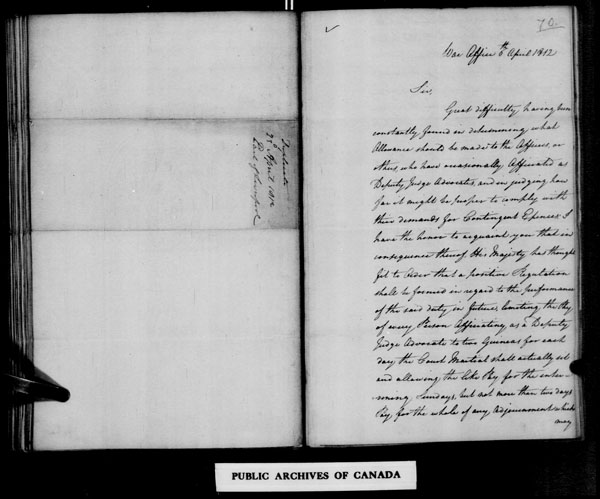 Duplicate
7th April 1812
Earl of Liverpool
70.
War Office 6th April 1812
Sir,
Great difficulty having been
constantly found in determining what
Allowance should be made to the Officers, or
others who have occasionally Officiated as
Deputy Judge Advocates, and in judging how
far it might be proper to comply with
their demands for Contingent Expences I
have the honor to acquaint you that in
consequence thereof His Majesty has thought
fit to Order that a positive Regulation
shall be formed in regard to the performance
of the said duty in future, limiting the Pay
of every Person Officiating as a Deputy
Judge Advocate to two Guineas for each
day the Court Martial shall actually sit
and allowing the like Pay for the inter-
vening Sundays, but not more than two days
Pay for the whole of any Adjournment which
may
PUBLIC ARCHIVES OF CANADA